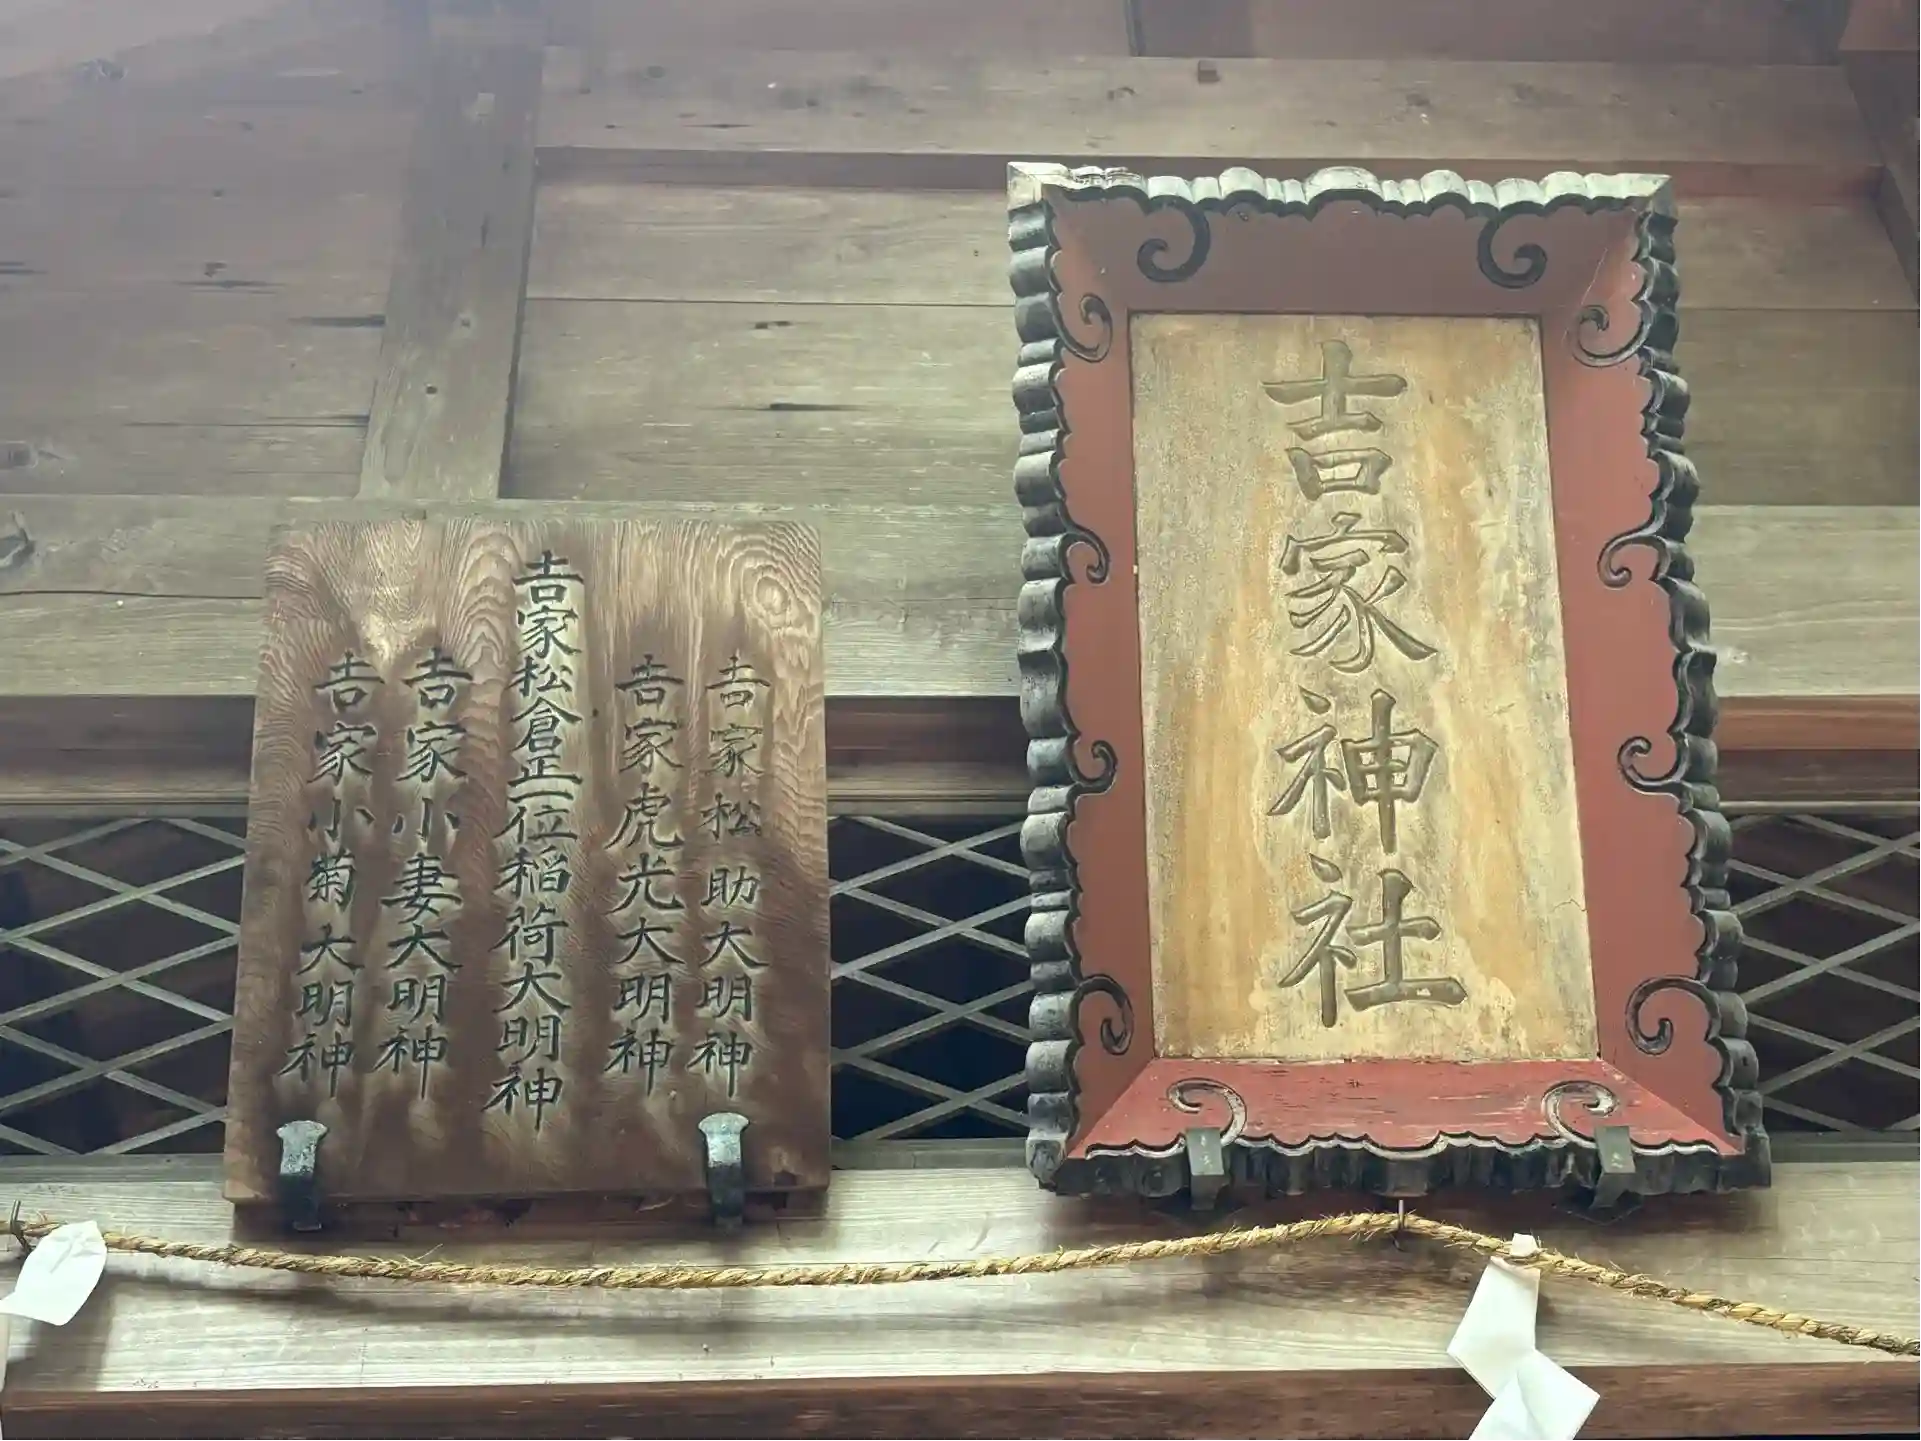 吉家神社
吉家松助大明神
吉家虎光大明神
吉家松倉正一位稲荷大明神
吉家小妻大明神
吉家小菊大明神